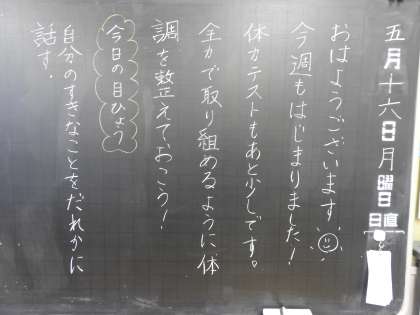 五月十六日月曜日
日直
おはようございます。
今週もはじまりました!
体力テストもあと少しです。
全力で取り組めるように体
調を整えておこう!
今日の目ひょう
自分のすきなことをだれかに
話す.